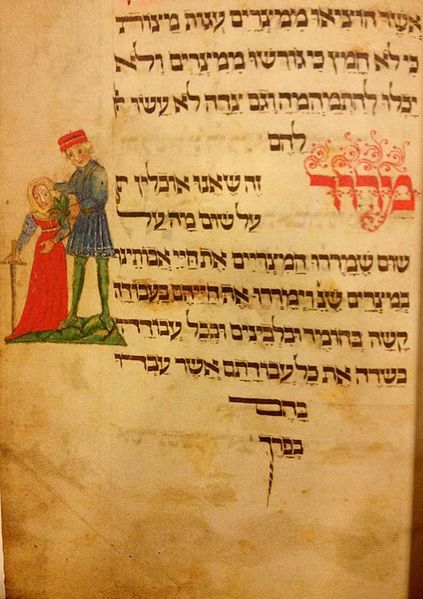 אשר הוציאו ממצרים עגות מצות
כי לא חמץ כי גורשו ממצרים ולא
יכלו להתמהמה וגם צדה לא עשו
להם
מרור זה שאנו אוכלין
על שום מה על
שום שמררו המצריים את חיי אבותינו
במצרים שנ וימררו את חייהם בעבודה
קשה בחומר ובלבינים ובכל עבודה
בשדה את כל עבודתם אשר עבדו
בהם
בפרך